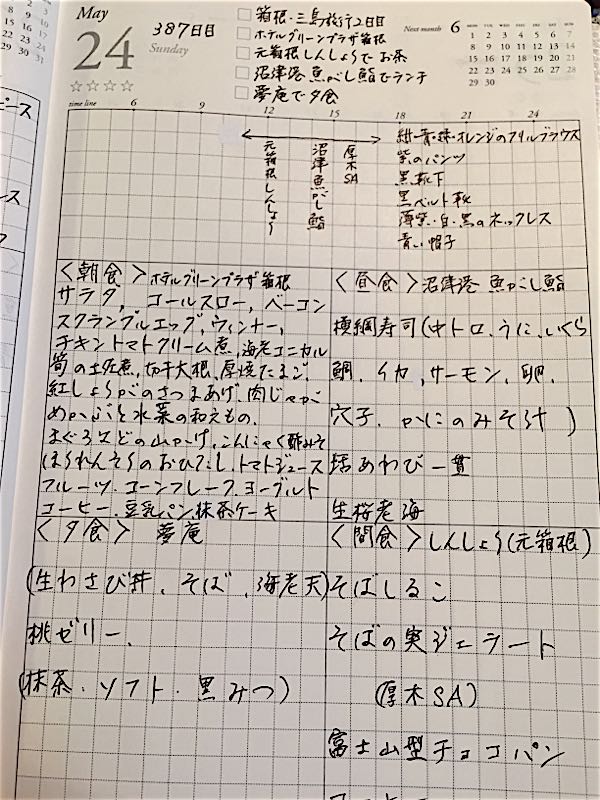 May
24
387日目
Sunday
☆☆☆☆
箱根・三島旅行2日目
ホテルグリーンプラザ箱根
元箱根しんしょうでお茶
沼津港 魚がし鮨でランチ
夢庵で夕食
Next month 6
MON TUE WED THU FRI SAT SUN
1 2 3 4 5 6 7
8 9 10 11 12 13 14
15 16 17 18 19 20 21
22 23 24 25 26 27 28
29 30
time line 6 9 12 15 18 21 24
元箱根しんしょう
沼津魚がし鮨
厚木SA
紺・青・緑・オレンジのフリルブラウス
紫のパンツ
黒靴下
黒ベルト靴
薄紫・白・黒のネックレス
青い帽子
<朝食> ホテルグリーンプラザ箱根
サラダ、コールスロー、ベーコン
スクランブルエッグ、ウィンナー、
チキントマトクリーム煮、海老コニカル
筍の土佐煮、切干大根、厚焼たまご、
紅しょうがのさつまあげ、肉じゃが
めかぶと水菜の和えもの、
まぐろほどの山かけ、こんにゃく酢みそ
ほうれんそうのおひたし、トマトジュース
フルーツ、コーンフレーク、ヨーグルト
コーヒー、豆乳パン、抹茶ケーキ
<昼食> 沼津港 魚がし鮨
横綱寿司(中トロ、うに、いくら
鯛、イカ、サーモン、卵、
穴子、かにのみそ汁)
活あわび一貫
生桜老海
<夕食> 夢庵
(生わさび丼、そば、海老天)
桃ゼリー、
(抹茶・ソフト・黒みつ)
<間食> しんしょう(元箱根)
そばしるこ
そばの実ジェラート
(厚木SA)
富士山型チョコパン